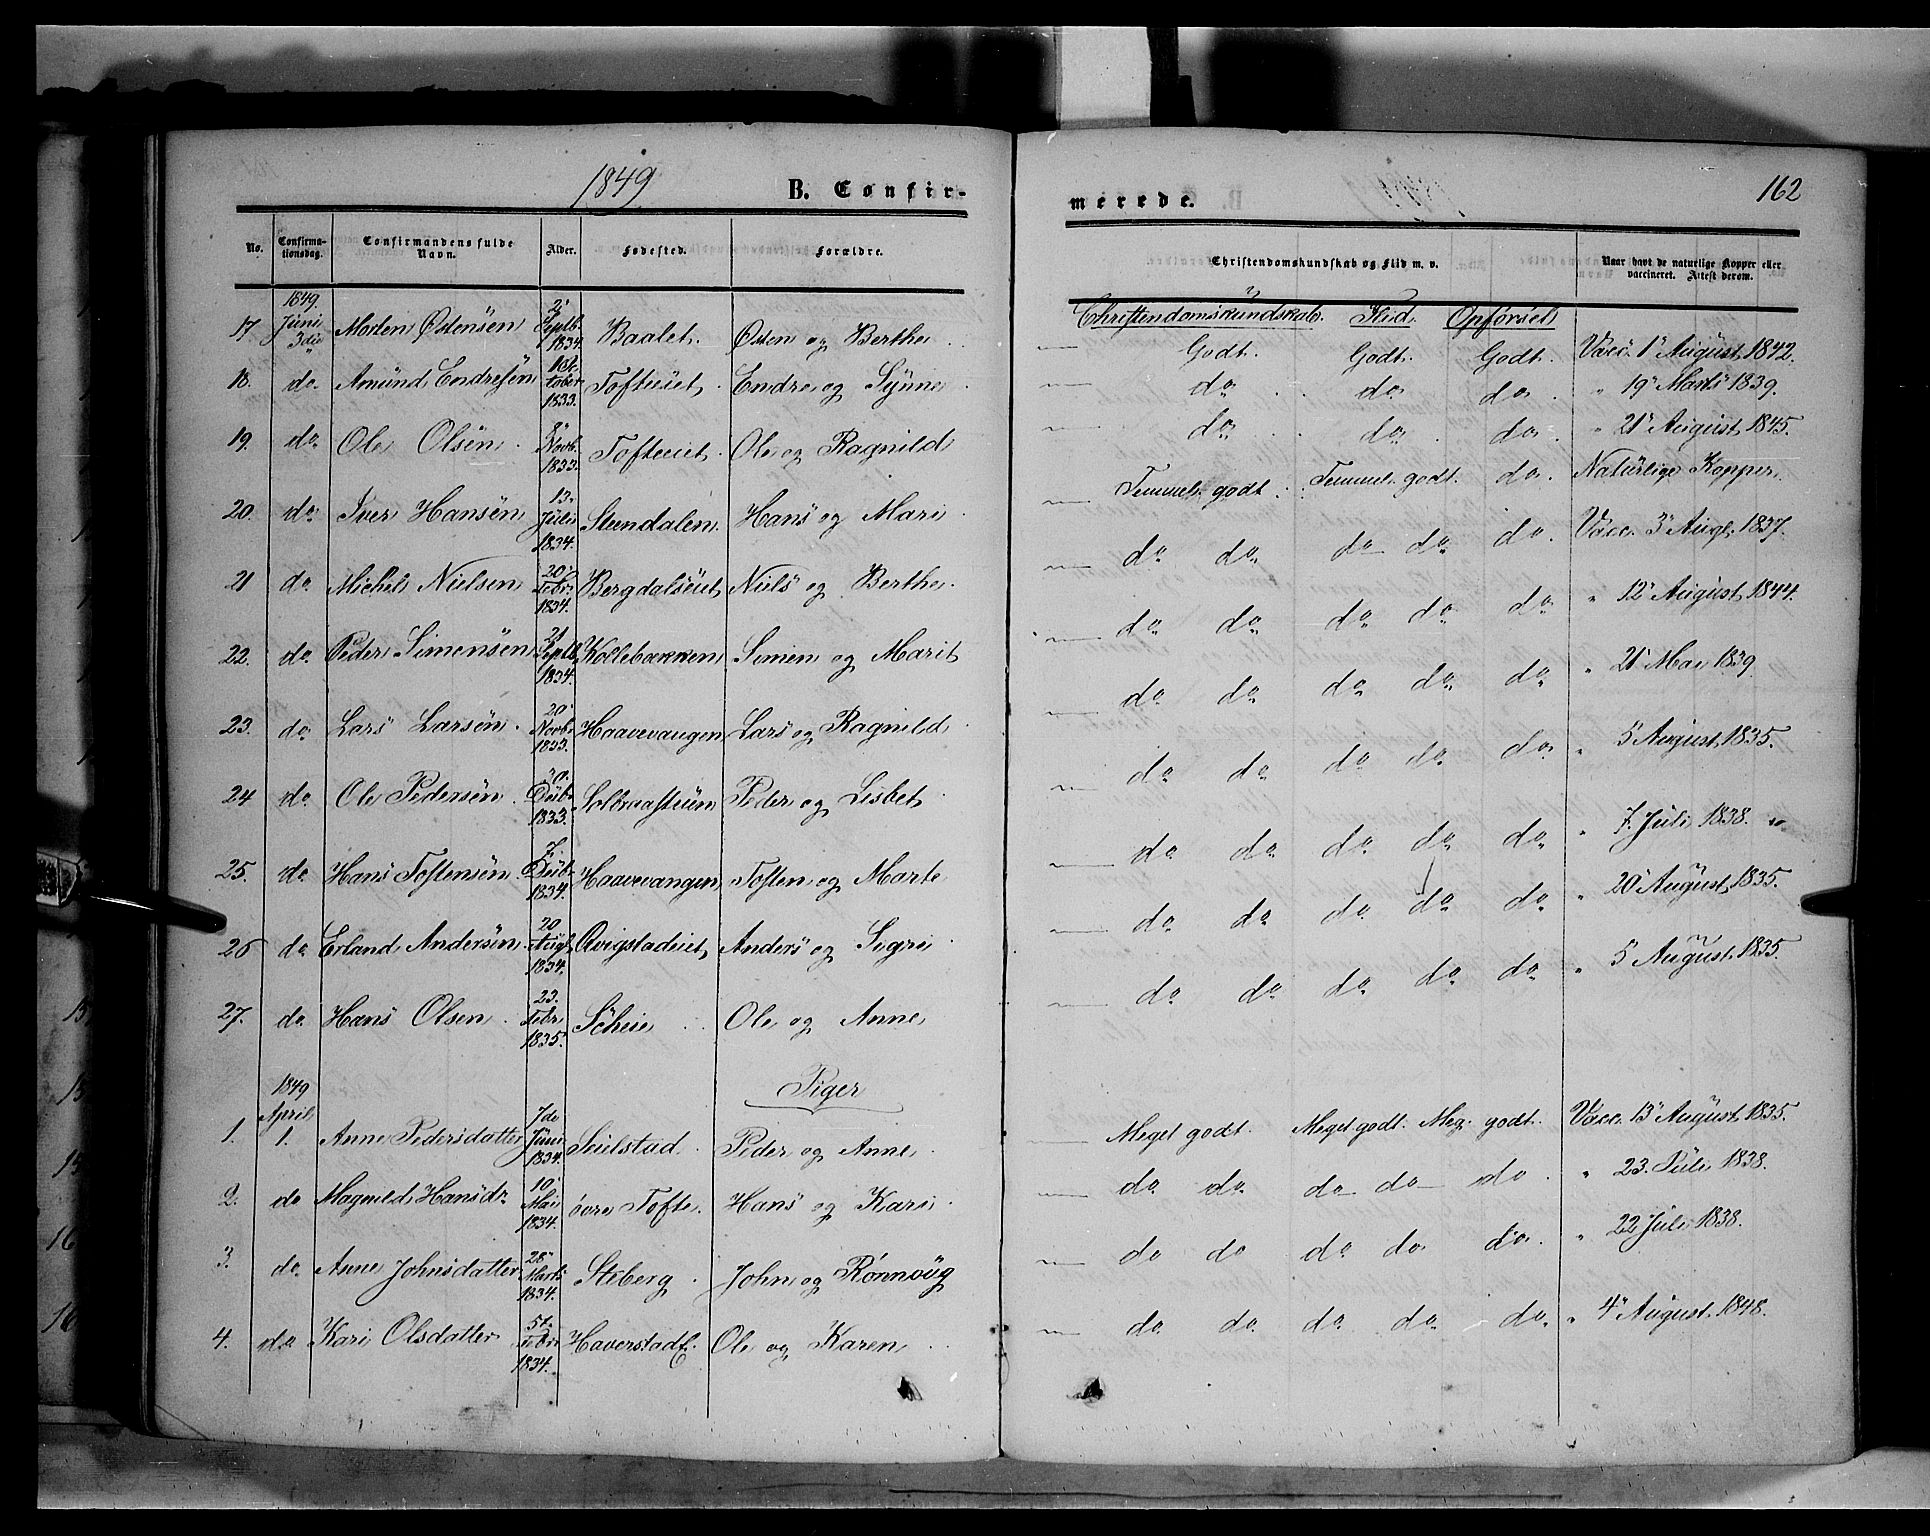 1849 B. Confir-
merede. 162
No. Confirma-tionsdag. Confirmandens fulde Navn. Alder. Fødested. Forældre.
Christendomskundskab og Flid m. v. Naar havt de naturlige Kopper eller vaccineret. Attest derom.
Christendomskundskab. Flid. Opførsel
17. 1849. Juni 3die Morten Østensön 2' Septb. 1834. Baalet. Østen og Berthe
Godt. Godt. Godt. Vacc. 1' August 1842.
18. do. Amund Endresön October 1833. Tofteeiet. Endre og Synne
do do do " 19' Marts 1839.
19. do Ole Olsön. 8' Novb. 1833. Tofteeiet. Ole og Ragnild
do do do " 21' August 1845.
20. do Iver Hansön 13' Juli 1834. Steendalen. Hans og Mari
Temmel. godt. Temmel. godt. do. Naturlige Kopper.
21 do. Michel Nielsen 20' Febr. 1834. Bergdalseiet Niels og Berthe.
do do do do do. Vacc. 3' Augt. 1837.
22. do. Peder Simensön 21 Septb. 1834. Kollebækken Simen og Marit
do do do do do " 12' August 1844.
23. do. Lars Larsön. 20' Novb. 1833. Haavevangen Lars og Ragnild
do do do do do " 21' Mai 1839.
24 do. Ole Pedersön. 30. Decb. 1833. Solbraasteiun Peder og Lisbet
do do do do do " 5 August 1835.
25. do Hans Tostensön. 7. Decb. 1834. Haavevangen Tosten og Marte
do do do do do " 7. Juli 1838.
26 do Erland Andersön 20 Augt. 1834. Qvigstadeiet Anders og Sigri
do do do do do " 20' August 1835.
27. do. Hans Olsen. 23. Febr. 1835. Scheie Ole og Anne
do do do do do " 5 August 1835.
Piger
1. 1849 April 1. Anne Pedersdatter 7de Juni 1834. Seielstad. Peder og Anne.
Meget godt. Meget godt. Meg. godt. Vacc. 13' August 1835.
2. do Magnild Hansdr 10' Mai 1834. övre Tofte. Hans og Kari
do do do do do. " 23. Juli 1838.
3. do. Anne Johnsdatter 28' Marts 1834. Steberg. John og Rønnoüg
do do do do do. " 22 Juli 1838.
4. do. Kari Olsdatter 5t. Febr. 1834. Haverstadt. Ole og Karen
do do do do do. " 4' August 1848.